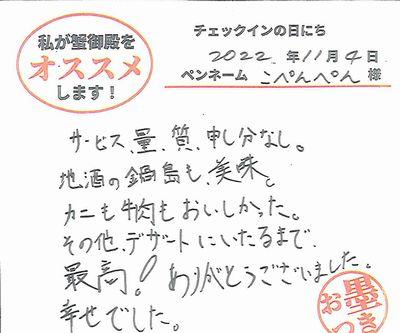 私が蟹御殿を
オススメ
します!
チェックインの日にち
2022.年11月4日
ペンネーム こぺんぺん 様
サービス、量、質、申し分なし。
地酒の鍋島も、美味し
カニも牛肉もおいしかった。
その他、デザートにいたるまで、
最高!ありがとうございました。
幸せでした。
お墨
つき